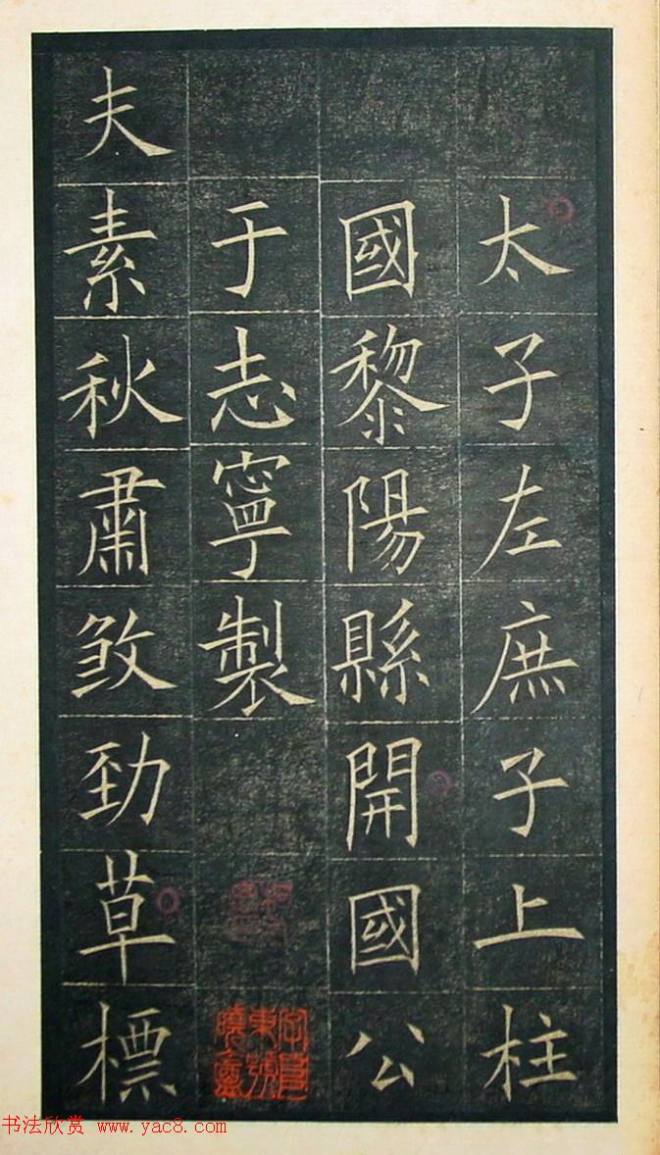 太子左庶子上柱
國黎陽縣開國公
于志寧製
夫素秋肅煞勁草標
书法欣赏 www.yac8.com